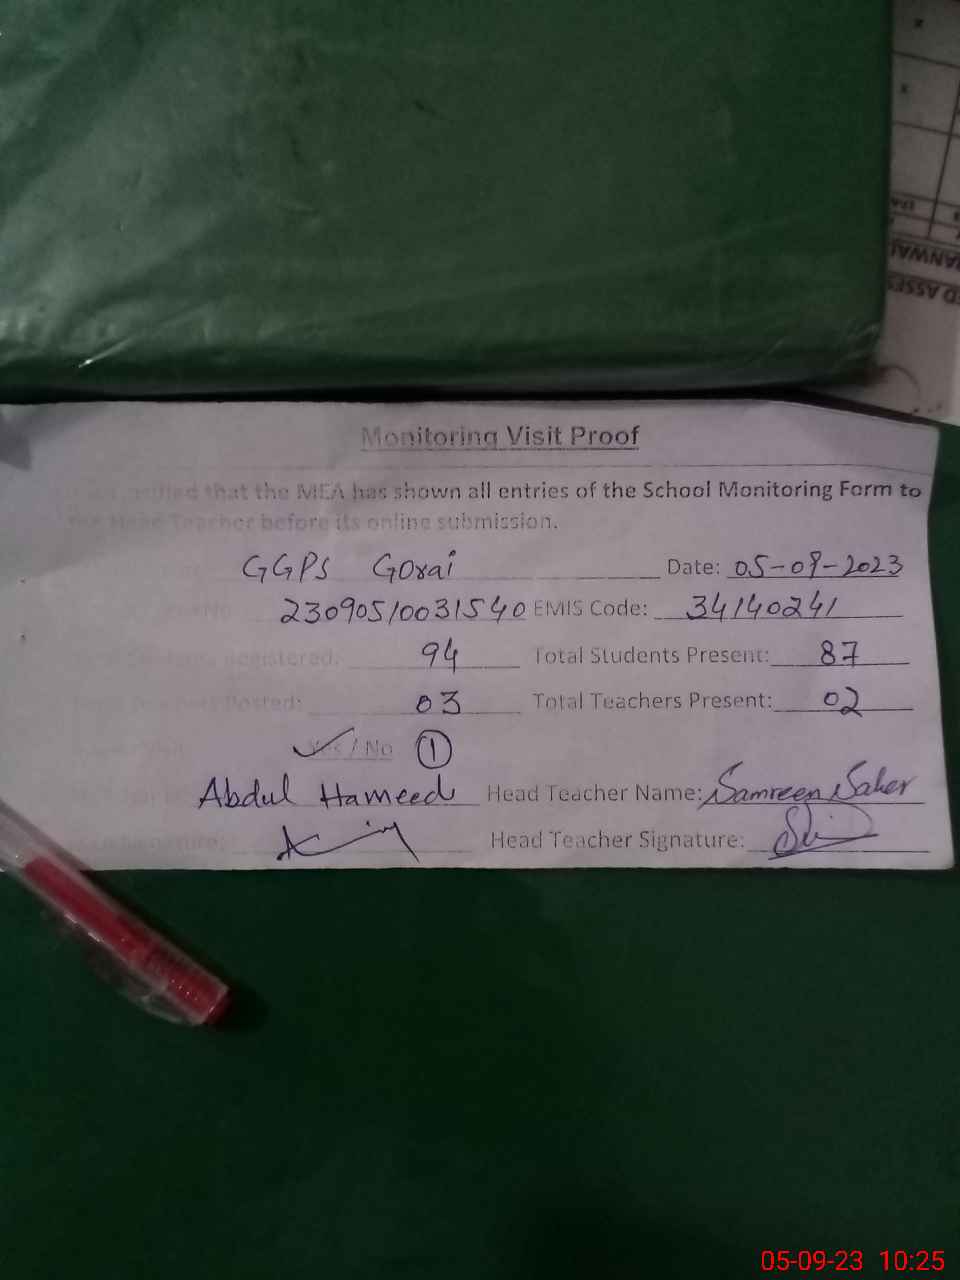 Monitoring Visit Proof
that the MEA has shown all entries of the School Monitoring Form to
the Head Teacher before its online submission.
GGPS Gorai Date: 05-09-2023
23090510031540 EMIS Code: 34140241
Registered: 94 Total Students Present: 87
Posted: 03 Total Teachers Present: 02
Yes / No 1
Abdul Hameed Head Teacher Name: Samreen Saher
Signature: Head Teacher Signature:
05-09-23 10:25